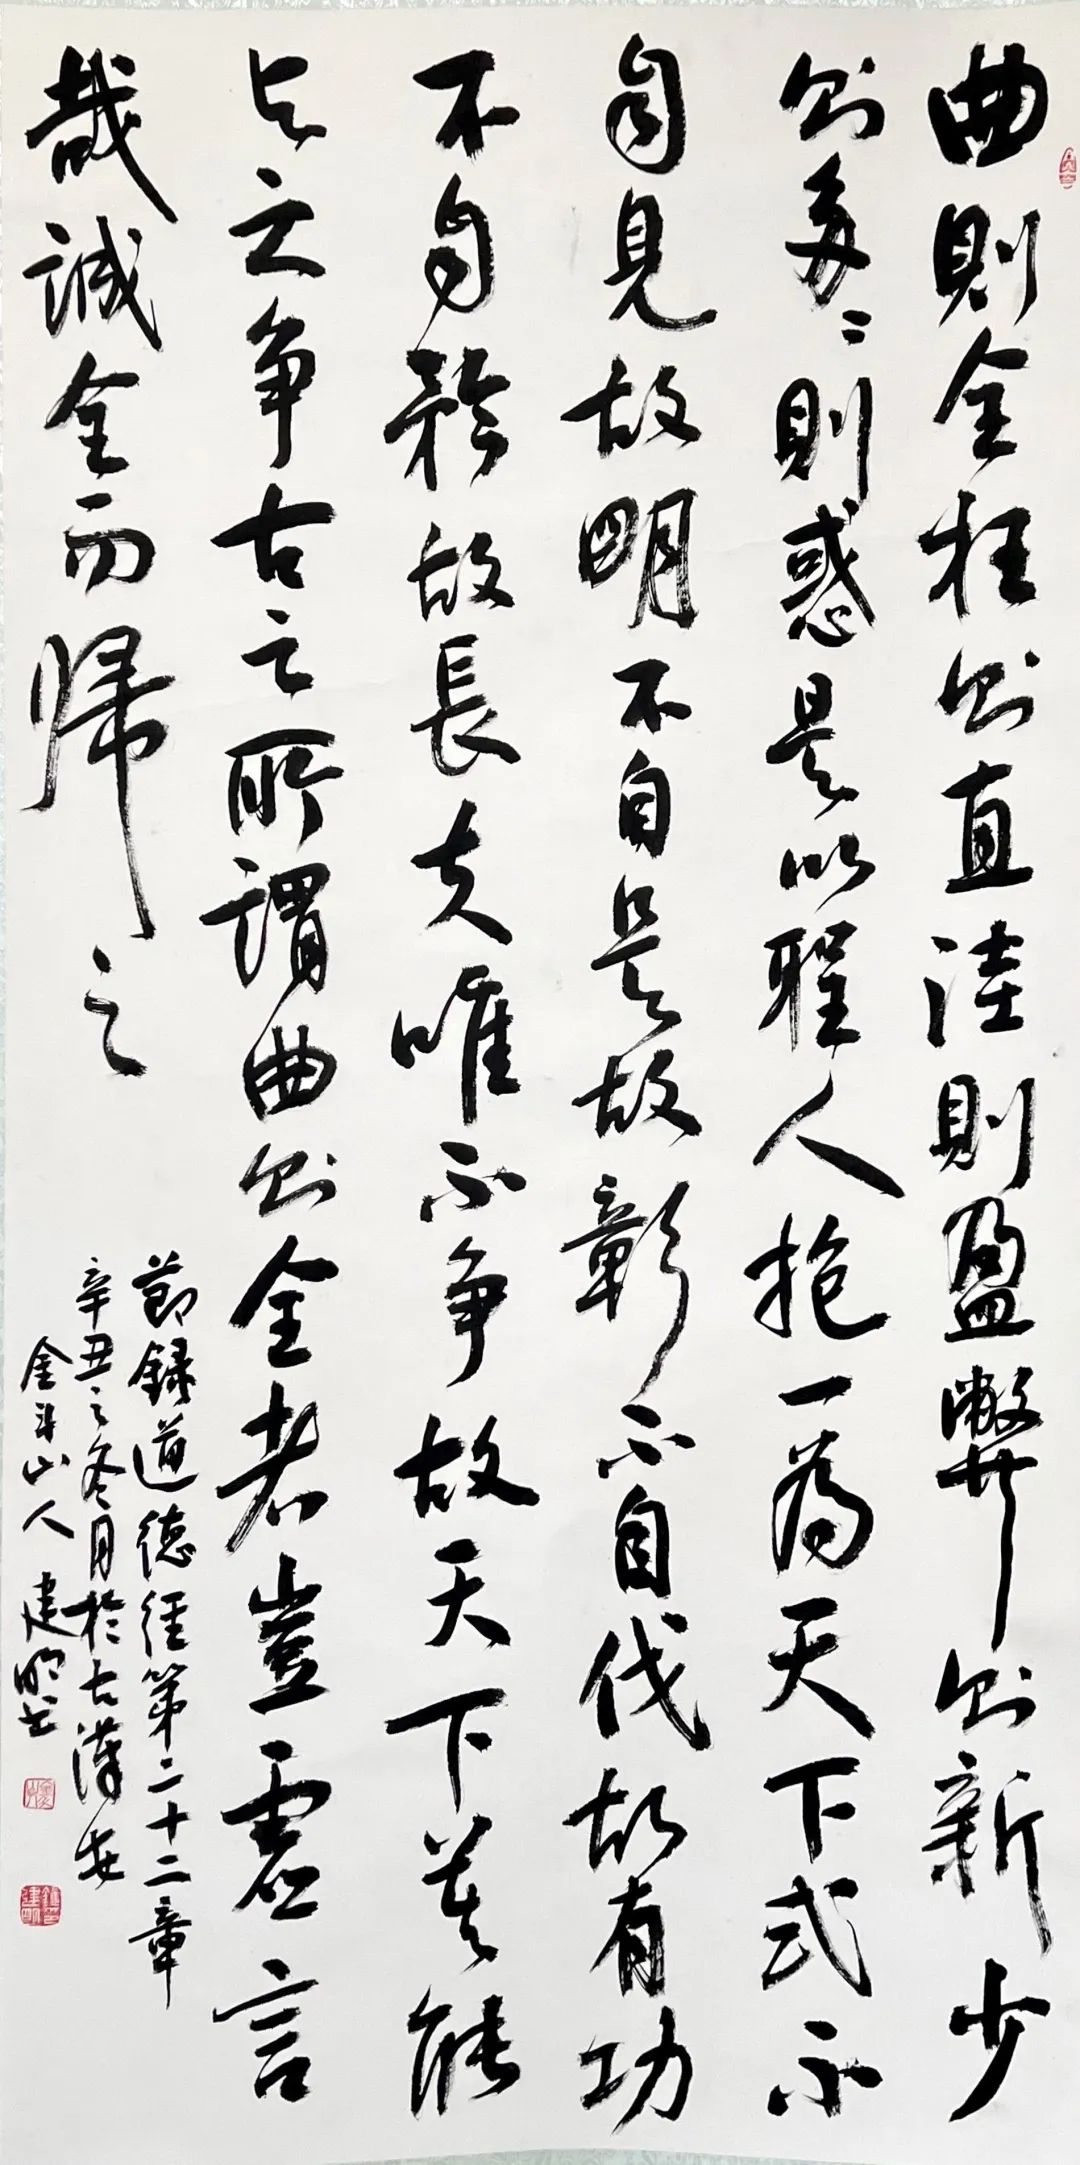 曲則全枉则直洼則盈弊则新少
则多〻則惑是以聖人抱一為天下式不
自見故明不自是故彰不自伐故有功
不自矜故長夫唯不争故天下莫能
与之争古之所謂曲则全者豈虚言
哉誠全而歸之
節録道德經第二十二章
辛丑之冬月於古漢安
金斗山人建明书